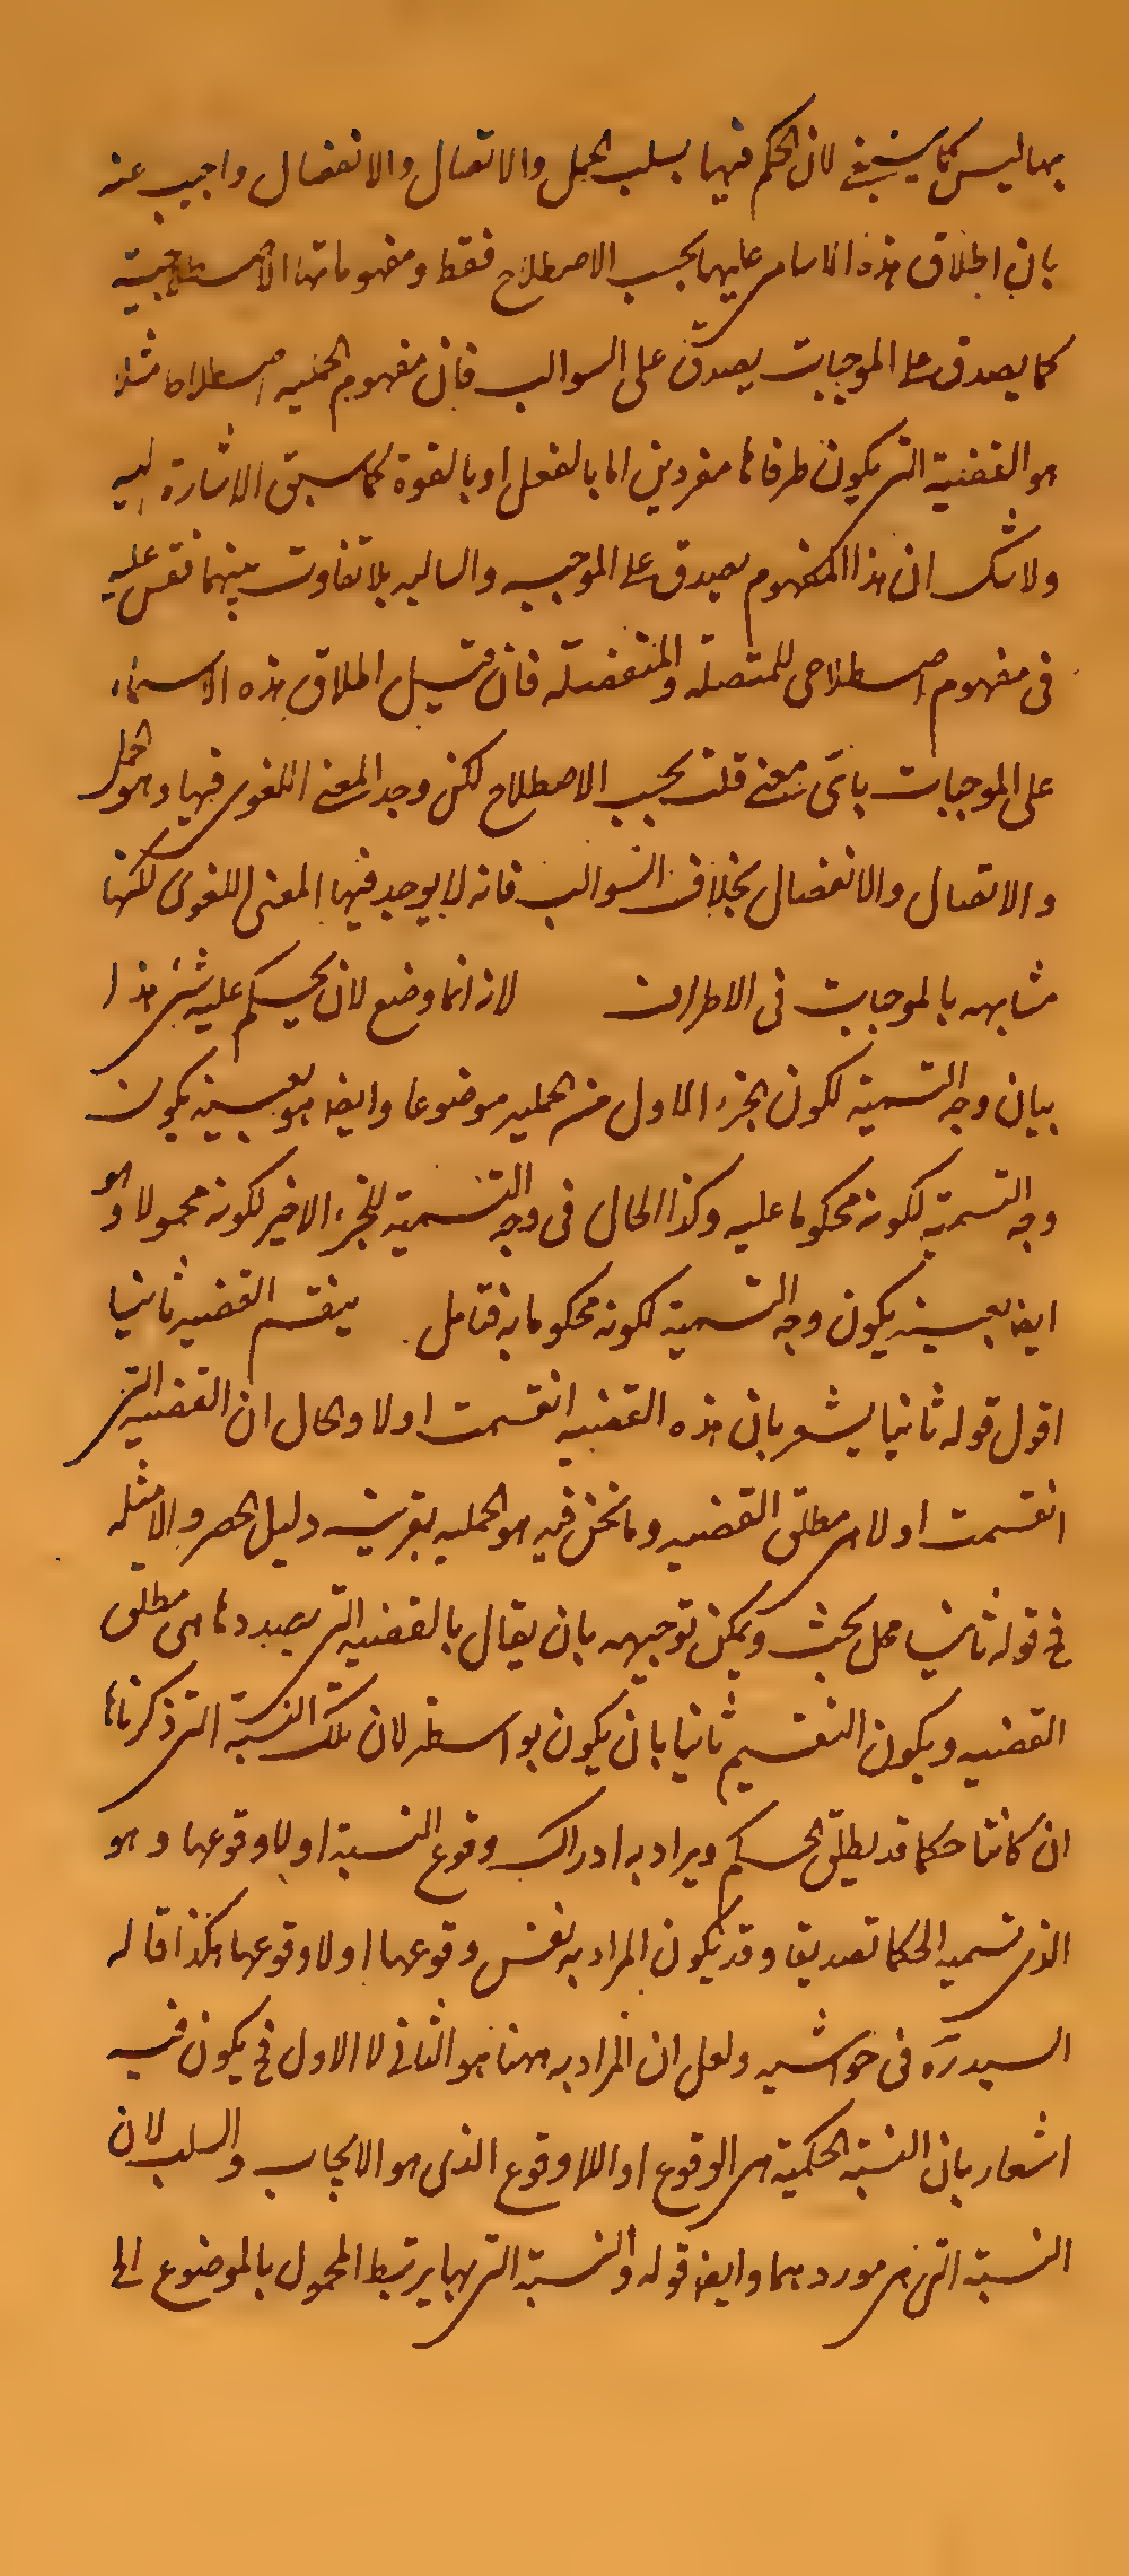 بها ليس كما ينبغي لان الحكم فيها بسلب الحمل والاتصال والانفصال واجيب عنه
بان اطلاق هذه الاسامى عليها بحسب الاصطلاح فقط ومفهوماتها الاصطلاحية
كما يصدق على الموجبات يصدق على السوالب فان مفهوم الحمليه اصطلاحا مثلا
هو القضية التى يكون طرفاها مفردين اما بالفعل او بالقوة كما سبق الاشارة اليه
ولا شك ان هذا المفهوم يصدق على الموجبه والسالبه بلا تفاوت بينهما فقس عليه
فى مفهوم اصطلاحى للمتصلة والمنفصلة فان قيل اطلاق هذه الاسماء
على الموجبات باى معنى قلت بحسب الاصطلاح لكن وجد المعنى اللغوى فيها وهو الحمل
والاتصال والانفصال بخلاف السوالب فانه لا يوجد فيها المعنى اللغوى لكنها
مشابهه بالموجبات فى الاطراف لانه انما وضع لان يحكم عليه شئ هذا
بيان وجه التسمية لكون الجزء الاول من الحمليه موضوعا وايضا هو بعينه يكون
وجه التسمية لكونه محكوما عليه وكذا الحال فى وجه التسمية للجزء الاخير لكونه محمولا وهو
ايضا بعينه يكون وجه التسمية لكونه محكوما به فتامل ينقسم القضيه ثانيا
اقول قوله ثانيا يشعر بان هذه القضيه انقسمت اولا والحال ان القضيه التى
انقسمت اولا هى مطلق القضيه وما نحن فيه هو الحمليه بقرينه دليل الحصر والامثله
فى قوله ثانيا محل بحث ويمكن توجيهه بان يقال بالقضيه التى بصددها هى مطلق
القضيه ويكون التقسيم ثانيا بان يكون بواسطه لان تلك النسبة التى ذكرناها
ان كانتا حكما قد يطلق الحكم ويراد به ادراك وقوع النسبة او لا وقوعها وهو
الذى تسميه الحكما تصديقا وقد يكون المراد به نفس وقوعها او لا وقوعها هكذا قاله
السيد ره فى حواشيه ولعل ان المراد به ههنا هو الثانى لا الاول فح يكون فيه
اشعار بان النسبة الحكمية هى الوقوع او اللاوقوع الذى هو الايجاب والسلب لان
النسبة التى هى موردهما وايضا قوله والنسبة التى بها يرتبط المحمول بالموضوع الى